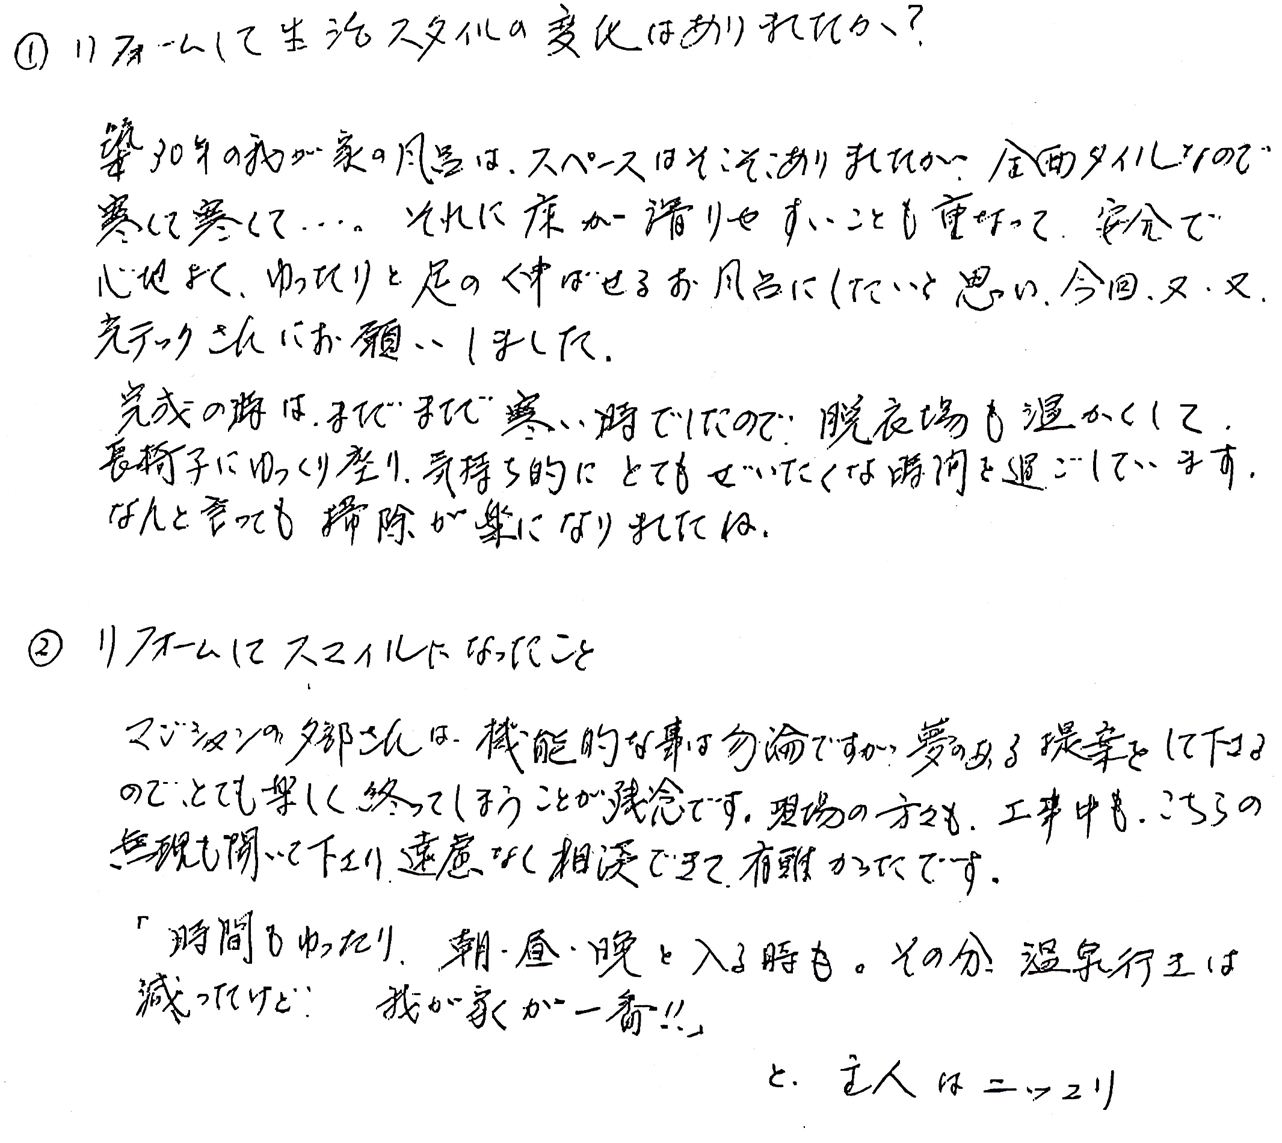 ① リフォームして生活スタイルの変化はありましたか?
築30年の我が家の風呂は、スペースはそこそこありましたが、全面タイルなので
寒くて寒くて・・・。それに床が滑りやすいことも重なって、安全で
心地よく、ゆったりと足の伸ばせるお風呂にしたいと思い、今回、又・又、
テックさんにお願いしました。
完成の時は、まだまだ寒い時でしたので、脱衣場も温かくして、
長椅子にゆっくり座り、気持ち的にとてもぜいたくな時間を過ごしています。
なんと言っても掃除が楽になりましたね。
② リフォームしてスマイルになったこと
マジシャンの夕部さんは、機能的な事は勿論ですが、夢のある提案をして下さる
ので、とても楽しく終ってしまうことが残念です。現場の方々も、工事中も、こちらの
無理も聞いて下さり、遠慮なく相談できて、有難かったです。
「時間もゆったり、朝・昼・晩と入る時も。その分、温泉行きは
減ったけど、我が家が一番!!」
と、主人はニッコリ